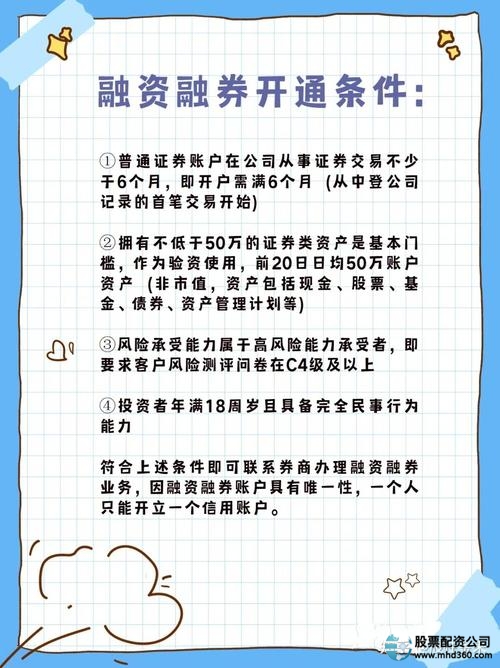 融资融券开通条件：
①普通证券账户在公司从事证券交易不少
于6个月，即开户需满6个月（从中登公司
记录的首笔交易开始)
②拥有不低于50万的证券类资产是基本门
槛，作为验资使用，前20日日均50万账户
资产（非市值，资产包括现金、股票、基
金、债券、资产管理计划等）
③风险承受能力属于高风险能力承受者，即
要求客户风险测评问卷在C4级及以上
④投资者年满18周岁且具备完全民事行为
能力
符合上述条件即可联系券商办理融资融券
业务，因融资融券账户具有唯一性，一个人
只能开立一个信用账户。
股票配资公司
www.mhd360.com